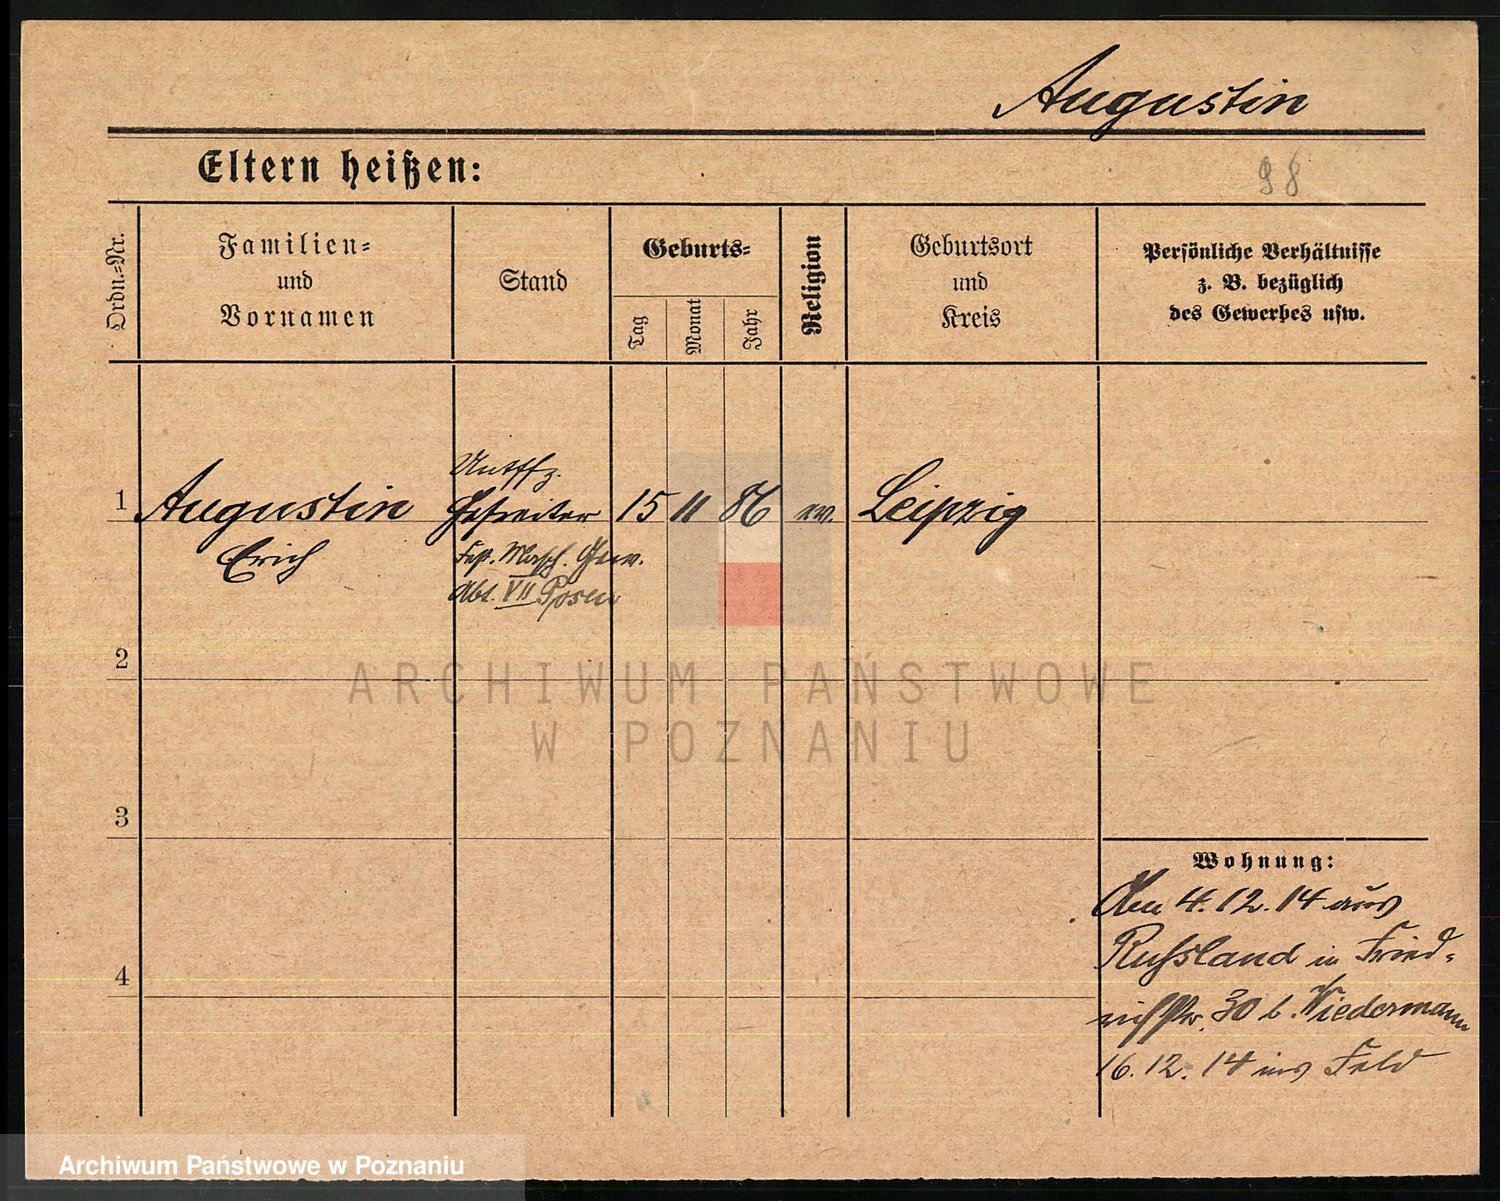 Augustin
Eltern heißen:
98
Ordn.=Nr.
Familien=
und
Vornamen
Stand
Geburts=
Tag
Monat
Jahr
Religion
Geburtsort
und
Kreis
Persönliche Verhältnisse
z. B. bezüglich
des Gewerbes usw.
1
Augustin
Erich
Untffz.
Gefreiter
Fest. Masch. Gew.
Abt. VII Posen
15
11
86
ev.
Leipzig
2
3
4
Wohnung:
Am 4.12.14 aus
Russland in Fried=
richstr. 30 b. Wiedermann
16.12.14 ins Feld
ARCHIWUM PAŃSTWOWE
W POZNANIU
Archiwum Państwowe w Poznaniu